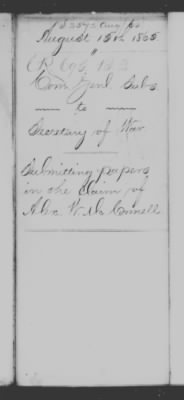 August 15th 1865
Com Genl Subs
to
Secretary of War
Submitting papers
in the claim of
Alex W. McConnell